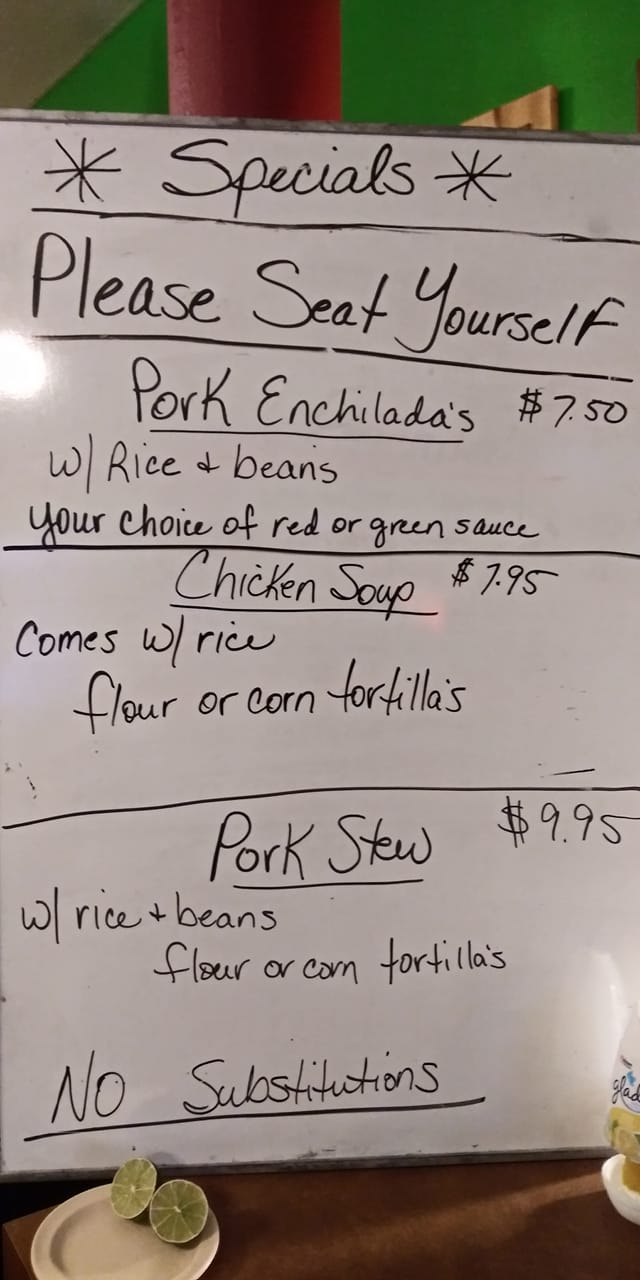 * Specials *
Please Seat Yourself
Pork Enchilada's $7.50
w/ Rice + beans
your choice of red or green sauce
Chicken Soup $7.95
Comes w/ rice
flour or corn tortilla's
Pork Stew $9.95
w/ rice + beans
flour or corn tortilla's
No Substitutions